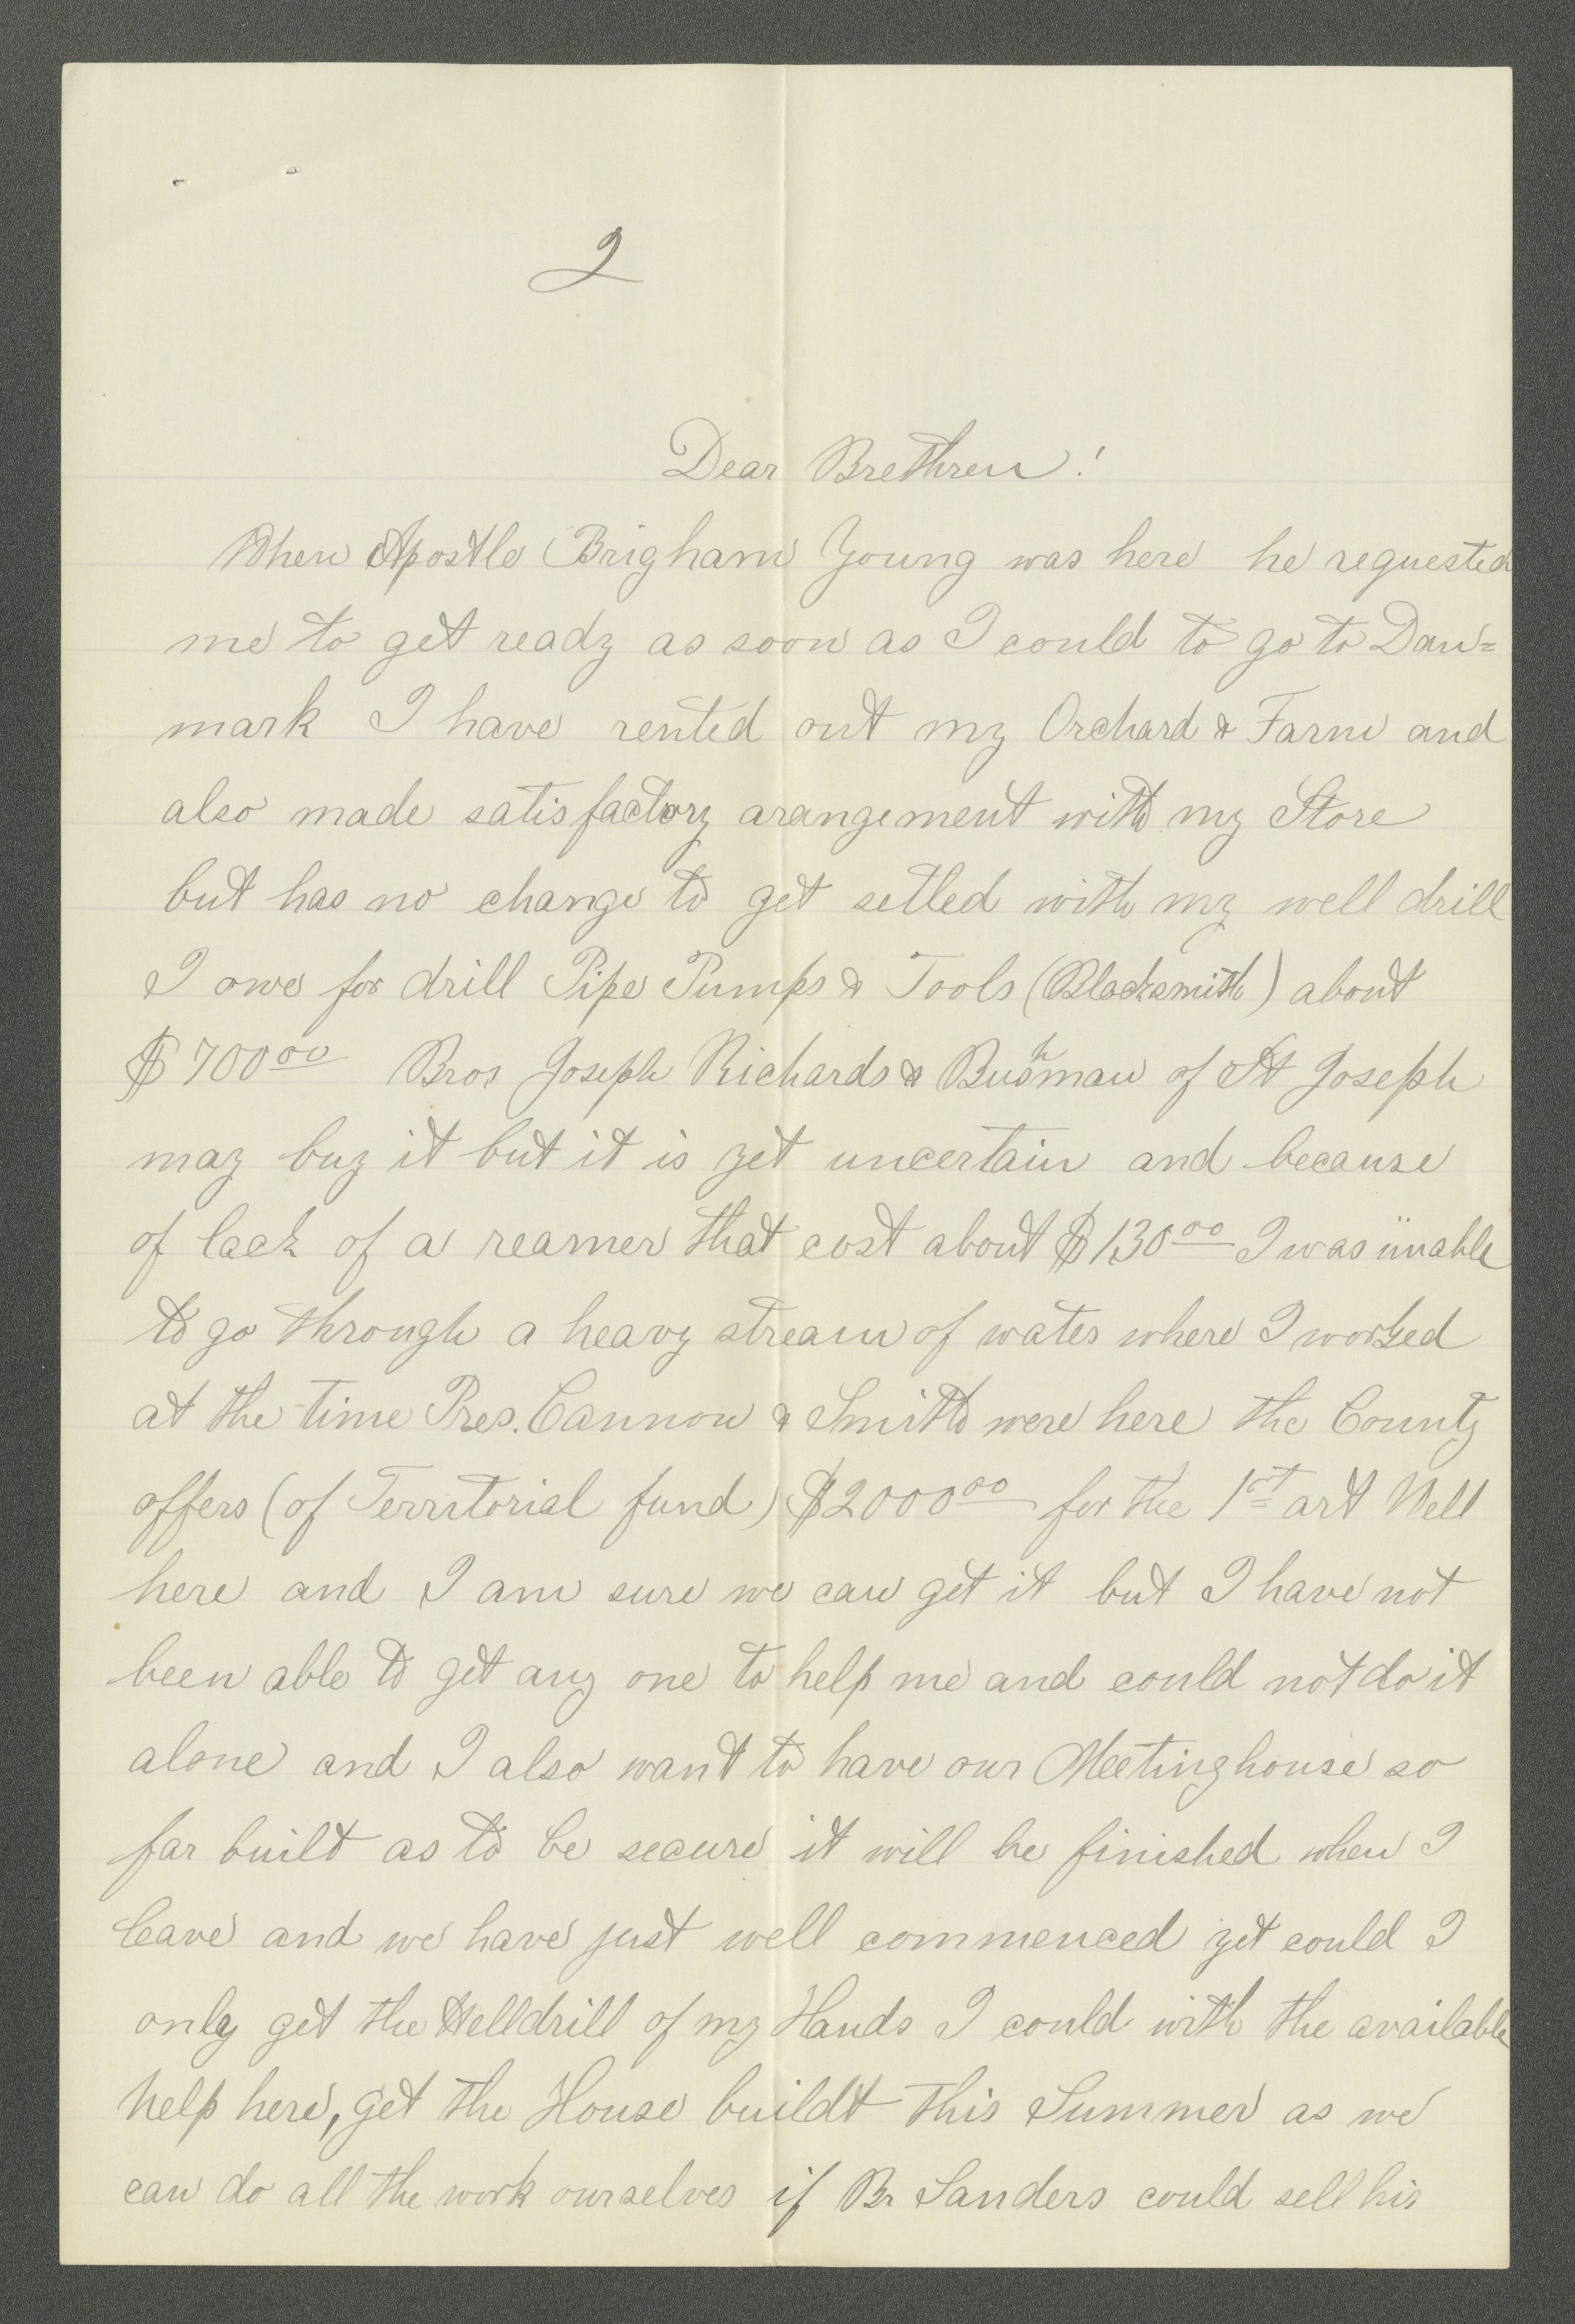 2
Dear Brethren!
When Apostle Brigham Young was here he requested
me to get ready as soon as I could to go to Den=
mark I have rented out my Orchard & Farm and
also made satisfactory arangement with my Store
but has no change to get setled with my well drill
I owe for drill Pipe Pumps & Tools (Blacksmith) about
$700.00 Bros Joseph Richards & Bushman of St Joseph
may buy it but it is yet uncertain and because
of lack of a reamer that cost about $130.00 I was unable
to go through a heavy stream of water where I worked
at the time Pres. Cannon & Smith were here the County
offers (of Territorial fund) $2000.00 for the 1st art Well
here and I am sure we can get it but I have not
been able to get any one to help me and could not do it
alone and I also want to have our Meetinghouse so
far built as to be secure it will be finished when I
leave and we have just well commenced yet could I
only get the Welldrill of my Hands I could with the available
help here, get the House buildt this Summer as we
can do all the work ourselves if Br Sanders could sell his